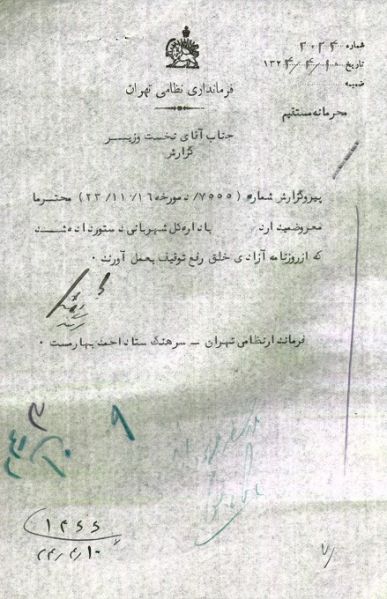 شماره ۲۰۲۴
تاریخ ۱۳۲۴/۴/۱۰
ضمیمه
فرمانداری نظامی تهران
محرمانه مستقیم
جناب آقای نخست وزیر
گزارش
پیروگزارش شماره (۷۵۵۵/ن مورخه ۲۳/۱۱/۱۶) محترما
معروض میدارد باداره کل شهربانی دستور داده شد
که ازروزنامه آزادی خلق رفع توقیف بعمل آورند .
فرماندار نظامی تهران - سرهنگ ستاد احمد بهارمست .
۹
۱۴۵۵
۲۴/۴/۱۰